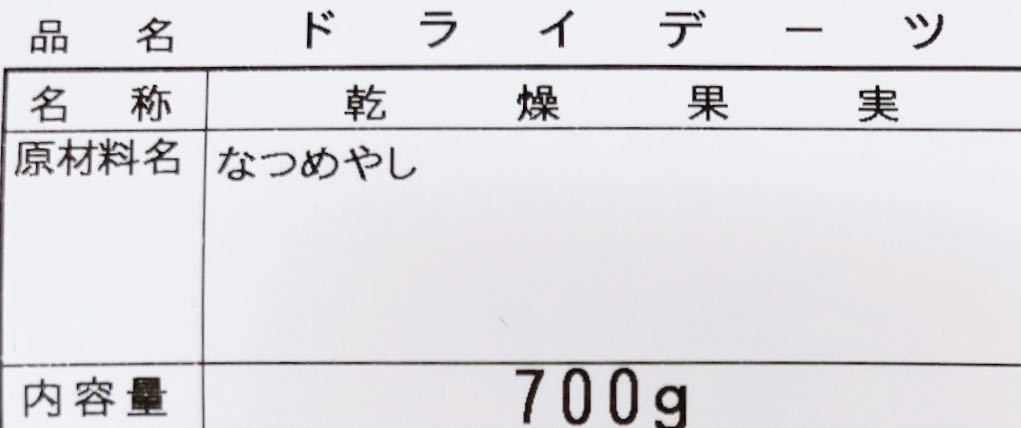 品名 ドライデーツ
名称 乾燥果実
原材料名 なつめやし
内容量 700g